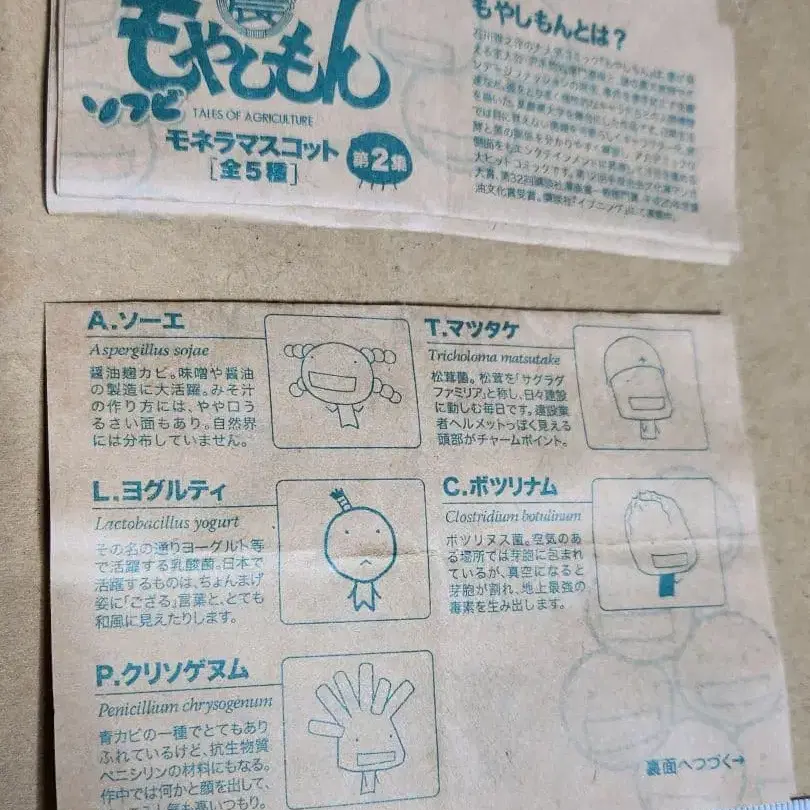 農
もやしもん
ソフビ
TALES OF AGRICULTURE
モネラマスコット
[全5種]
第2集
もやしもんとは?
A.ソーエ
Aspergillus sojae
醤油麹カビ。味噌や醤油
の製造に大活躍。みそ汁
の作り方には、やや口う
るさい面もあり。自然界
には分布していません。
T.マツタケ
Tricholoma matsutake
松茸菌。松茸を「サグラダ
ファミリア」と称し、日々建設
に勤しむ毎日です。建設業
者ヘルメットっぽく見える
頭部がチャームポイント。
L.ヨグルティ
Lactobacillus yogurt
その名の通りヨーグルト等
で活躍する乳酸菌。日本で
活躍するものは、ちょんまげ
姿に「ござる」言葉と、とても
和風に見えたりします。
C.ボツリナム
Clostridium botulinum
ボツリヌス菌。空気のあ
る場所では芽胞に包まれ
ているが、真空になると
芽胞が割れ、地上最強の
毒素を生み出します。
P.クリソゲヌム
Penicillium chrysogenum
青カビの一種でとてもあり
ふれているけど、抗生物質
ペニシリンの材料にもなる。
作中では何かと顔を出して、
気も高いつもり。
裏面へつづく→